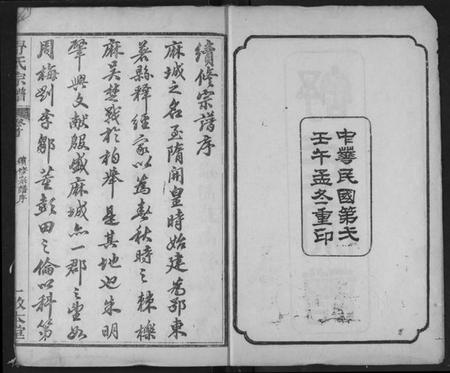 中華民國第一
壬午孟冬重印
續修宗譜序
麻城之名至隋開皇時始建為鄂東
著縣釋經家以為春秋時之棘櫟
麻吳楚戰於柏舉是其地也朱明
肇興文獻殷盛麻城亦一郡之望如
周梅劉李鄒董彭田之倫以科第
氏宗譜
卷首
續修宗譜序
一
敦本堂